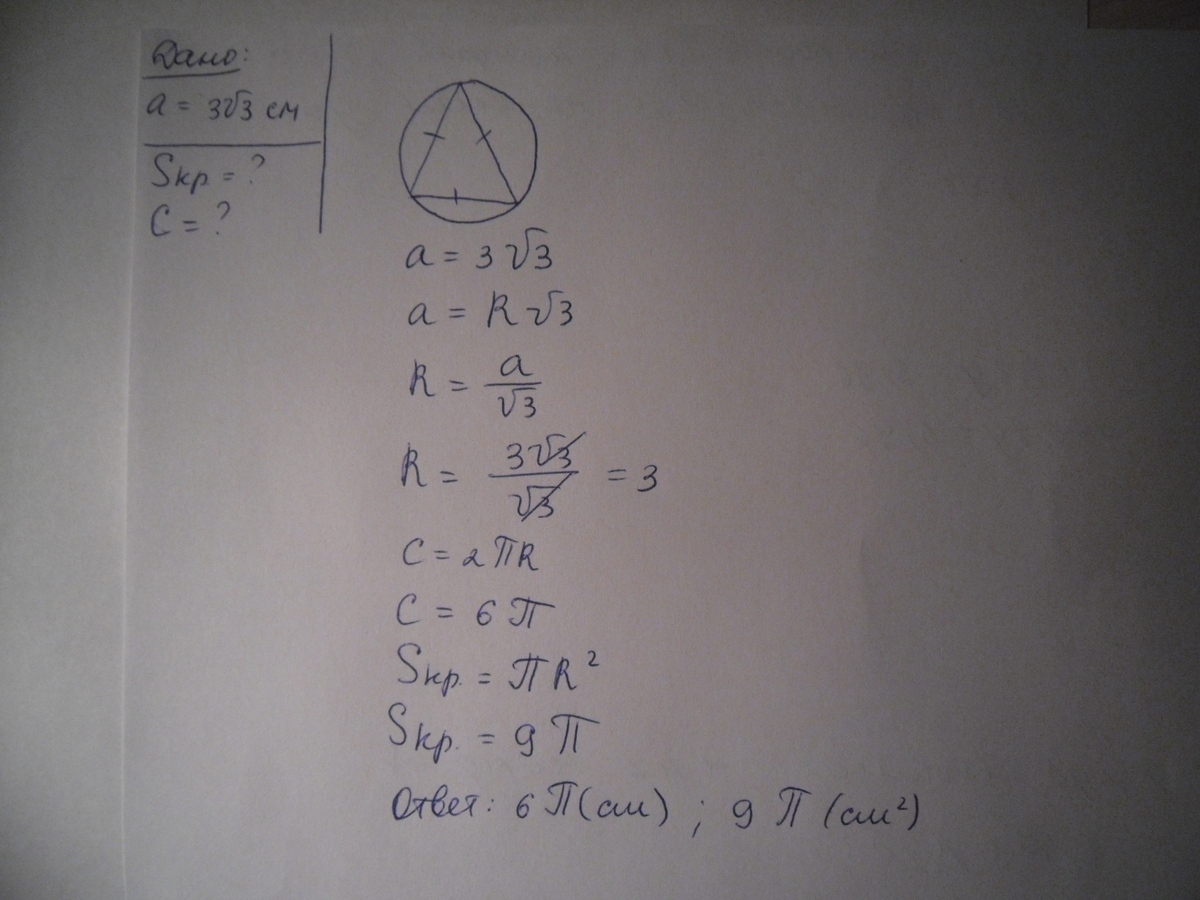 Дано:
a = 3√3 см
Sкр. = ?
C = ?
a = 3√3
a = R√3
R = a/√3
R = 3√3/√3 = 3
C = 2πR
C = 6π
Sкр. = πR²
Sкр. = 9π
Ответ: 6π(см) ; 9π (см²)